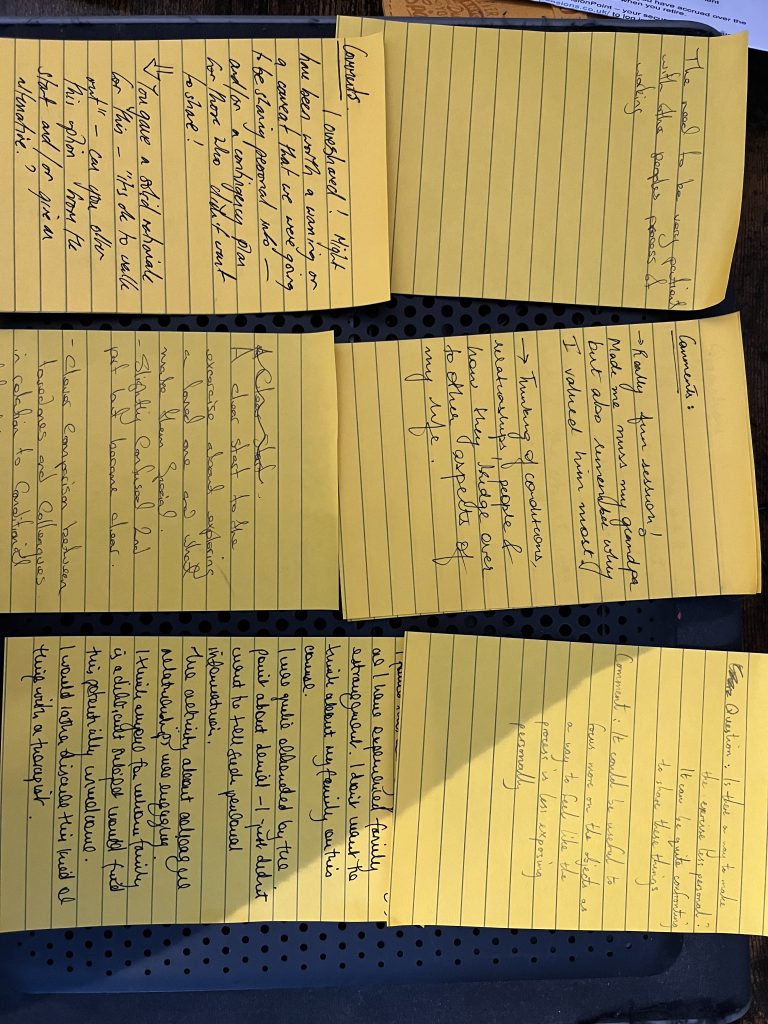 have accrued over the
when you retire.
ensionPoint – your secu
ensions.co.uk/ to log in
The need to be very patient
with other peoples process of
working
Comments
I overshared! Might
have been worth a warning or
a caveat that we were going
to be sharing personal info –
and/or a contingency plan
for those who didn't want
to share!
You gave a solid rationale
for this – "it's ok to walk
out" – can you offer
this option from the
start and/or give an
alternative?
Comments:
→ Really fun session!
Made me miss my grandpa
but also remember why
I valued him most!
→ Thinking of conditions,
relationships, people &
how they bridge over
to other aspects of
my life.
A Clear Start.
A clear start to the
exercise about exploring
a loved one and what
make them special.
- Slightly confused 2nd
part but became clear.
- Clever comparison between
loved ones and colleagues
in relation to conditional
Question: Is there a way to make
the exercise less personal?
It can be quite confronting
to share these things
Comment: It could be useful to
focus more on the objects as
a way to feel like the
process is less exposing
personally
as I have experienced family
estrangement. I don't want to
think about my family on this
course.
I was quite offended by the
point about denial – I just didn't
want to tell such personal
information.
The activity about colleague
relationships was engaging
I think anyone for whom family
is a delicate subject would find
this potentially unwelcome.
I would rather discuss this kind of
thing with a therapist.